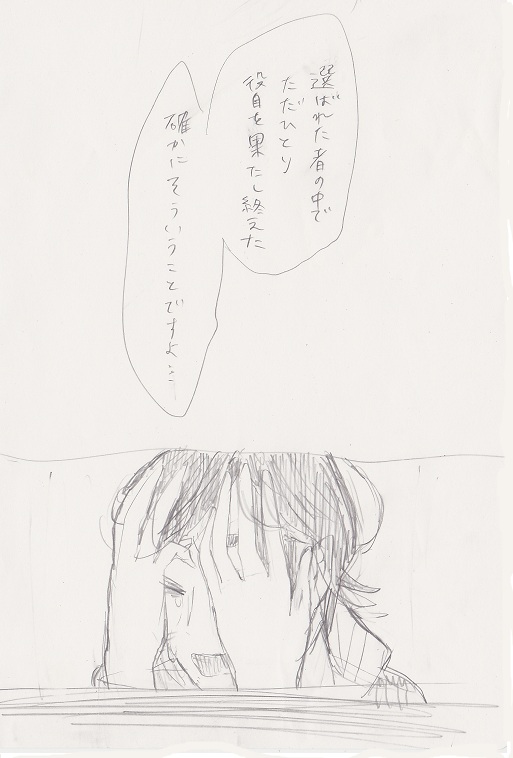 選ばれた者の中で
ただひとり
役目を果たし終えた
確かにそういうことですよ…